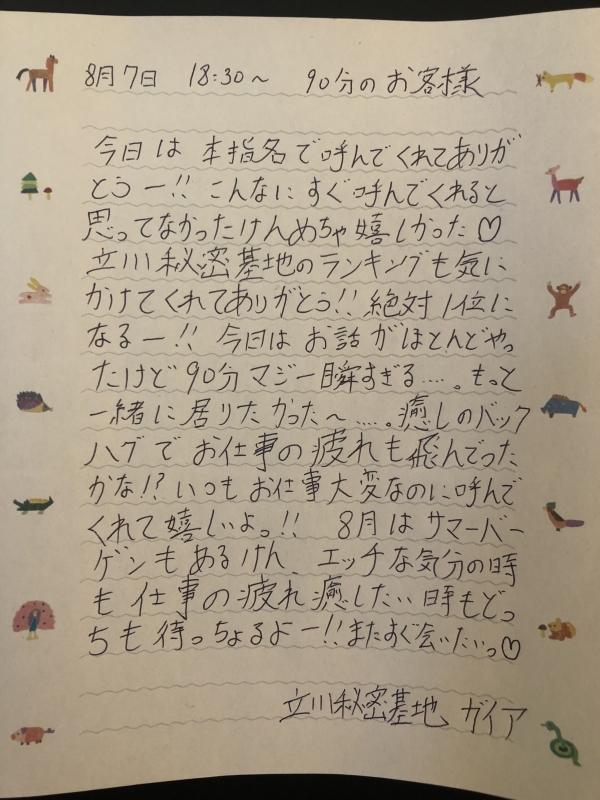 8月7日 18:30〜 90分のお客様
今日は本指名で呼んでくれてありが
とうー!! こんなにすぐ呼んでくれると
思ってなかったけんめちゃ嬉しかった♡
立川秘密基地のランキングも気に
かけてくれてありがとう!! 絶対1位に
なるー!! 今日はお話がほとんどやっ
たけど90分マジ一瞬すぎる....。もっと
一緒に居りたかった〜....。癒しのバック
ハグでお仕事の疲れも飛んでった
かな!? いつもお仕事大変なのに呼んで
くれて嬉しいよっ!! 8月はサマーバー
ゲンもあるけん、エッチな気分の時
も仕事の疲れ癒したい時もどっ
ちも待っちょるよー!! またすぐ会いたいっ♡
立川秘密基地 ガイア